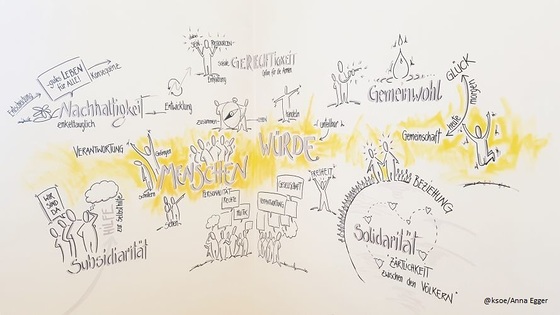 gutes LEBEN
für ALLE!
Entscheidung
Konsequenz
Nachhaltigkeit
enkeltauglich
Entwicklung
RESSOURCEN
Verteilung
soziale GERECHTIGKEIT
Option für die Armen
zusammen
handeln
Gemeinwohl
GLÜCK
morgen
heute
Gemeinschaft
VERANTWORTUNG
MENSCHEN
WÜRDE
sehen
WIR
SIND
DA
HILFE
zur Selbsthilfe
Subsidiarität
PERSONALITÄT
RECHTE
POLITIK
GESELLSCHAFT
VERANTWORTUNG
FREIHEIT
BEZIEHUNG
Solidarität
"ZÄRTLICHKEIT
zwischen den VÖLKERN"
@ksoe/Anna Egger